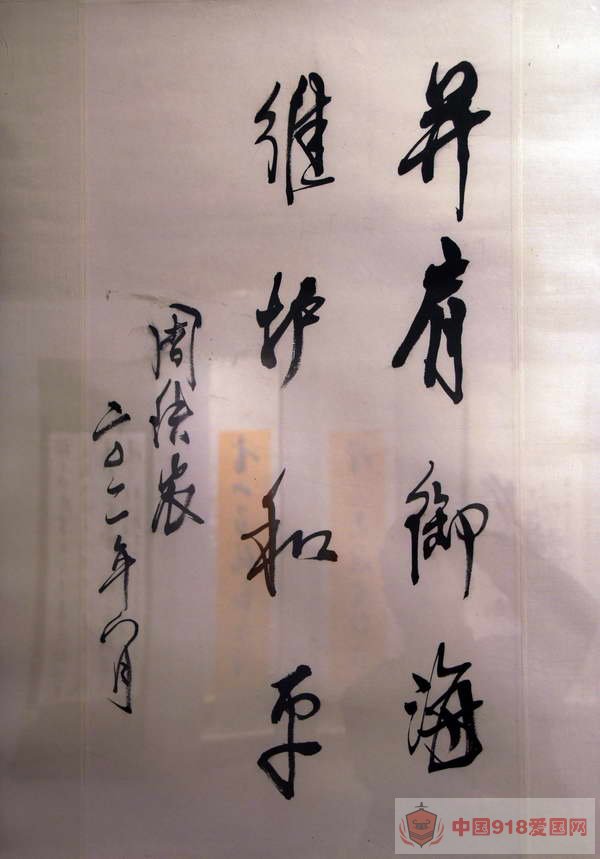 并肩御海
维护和平
周铁农
二〇一一年六月
中国918爱国网